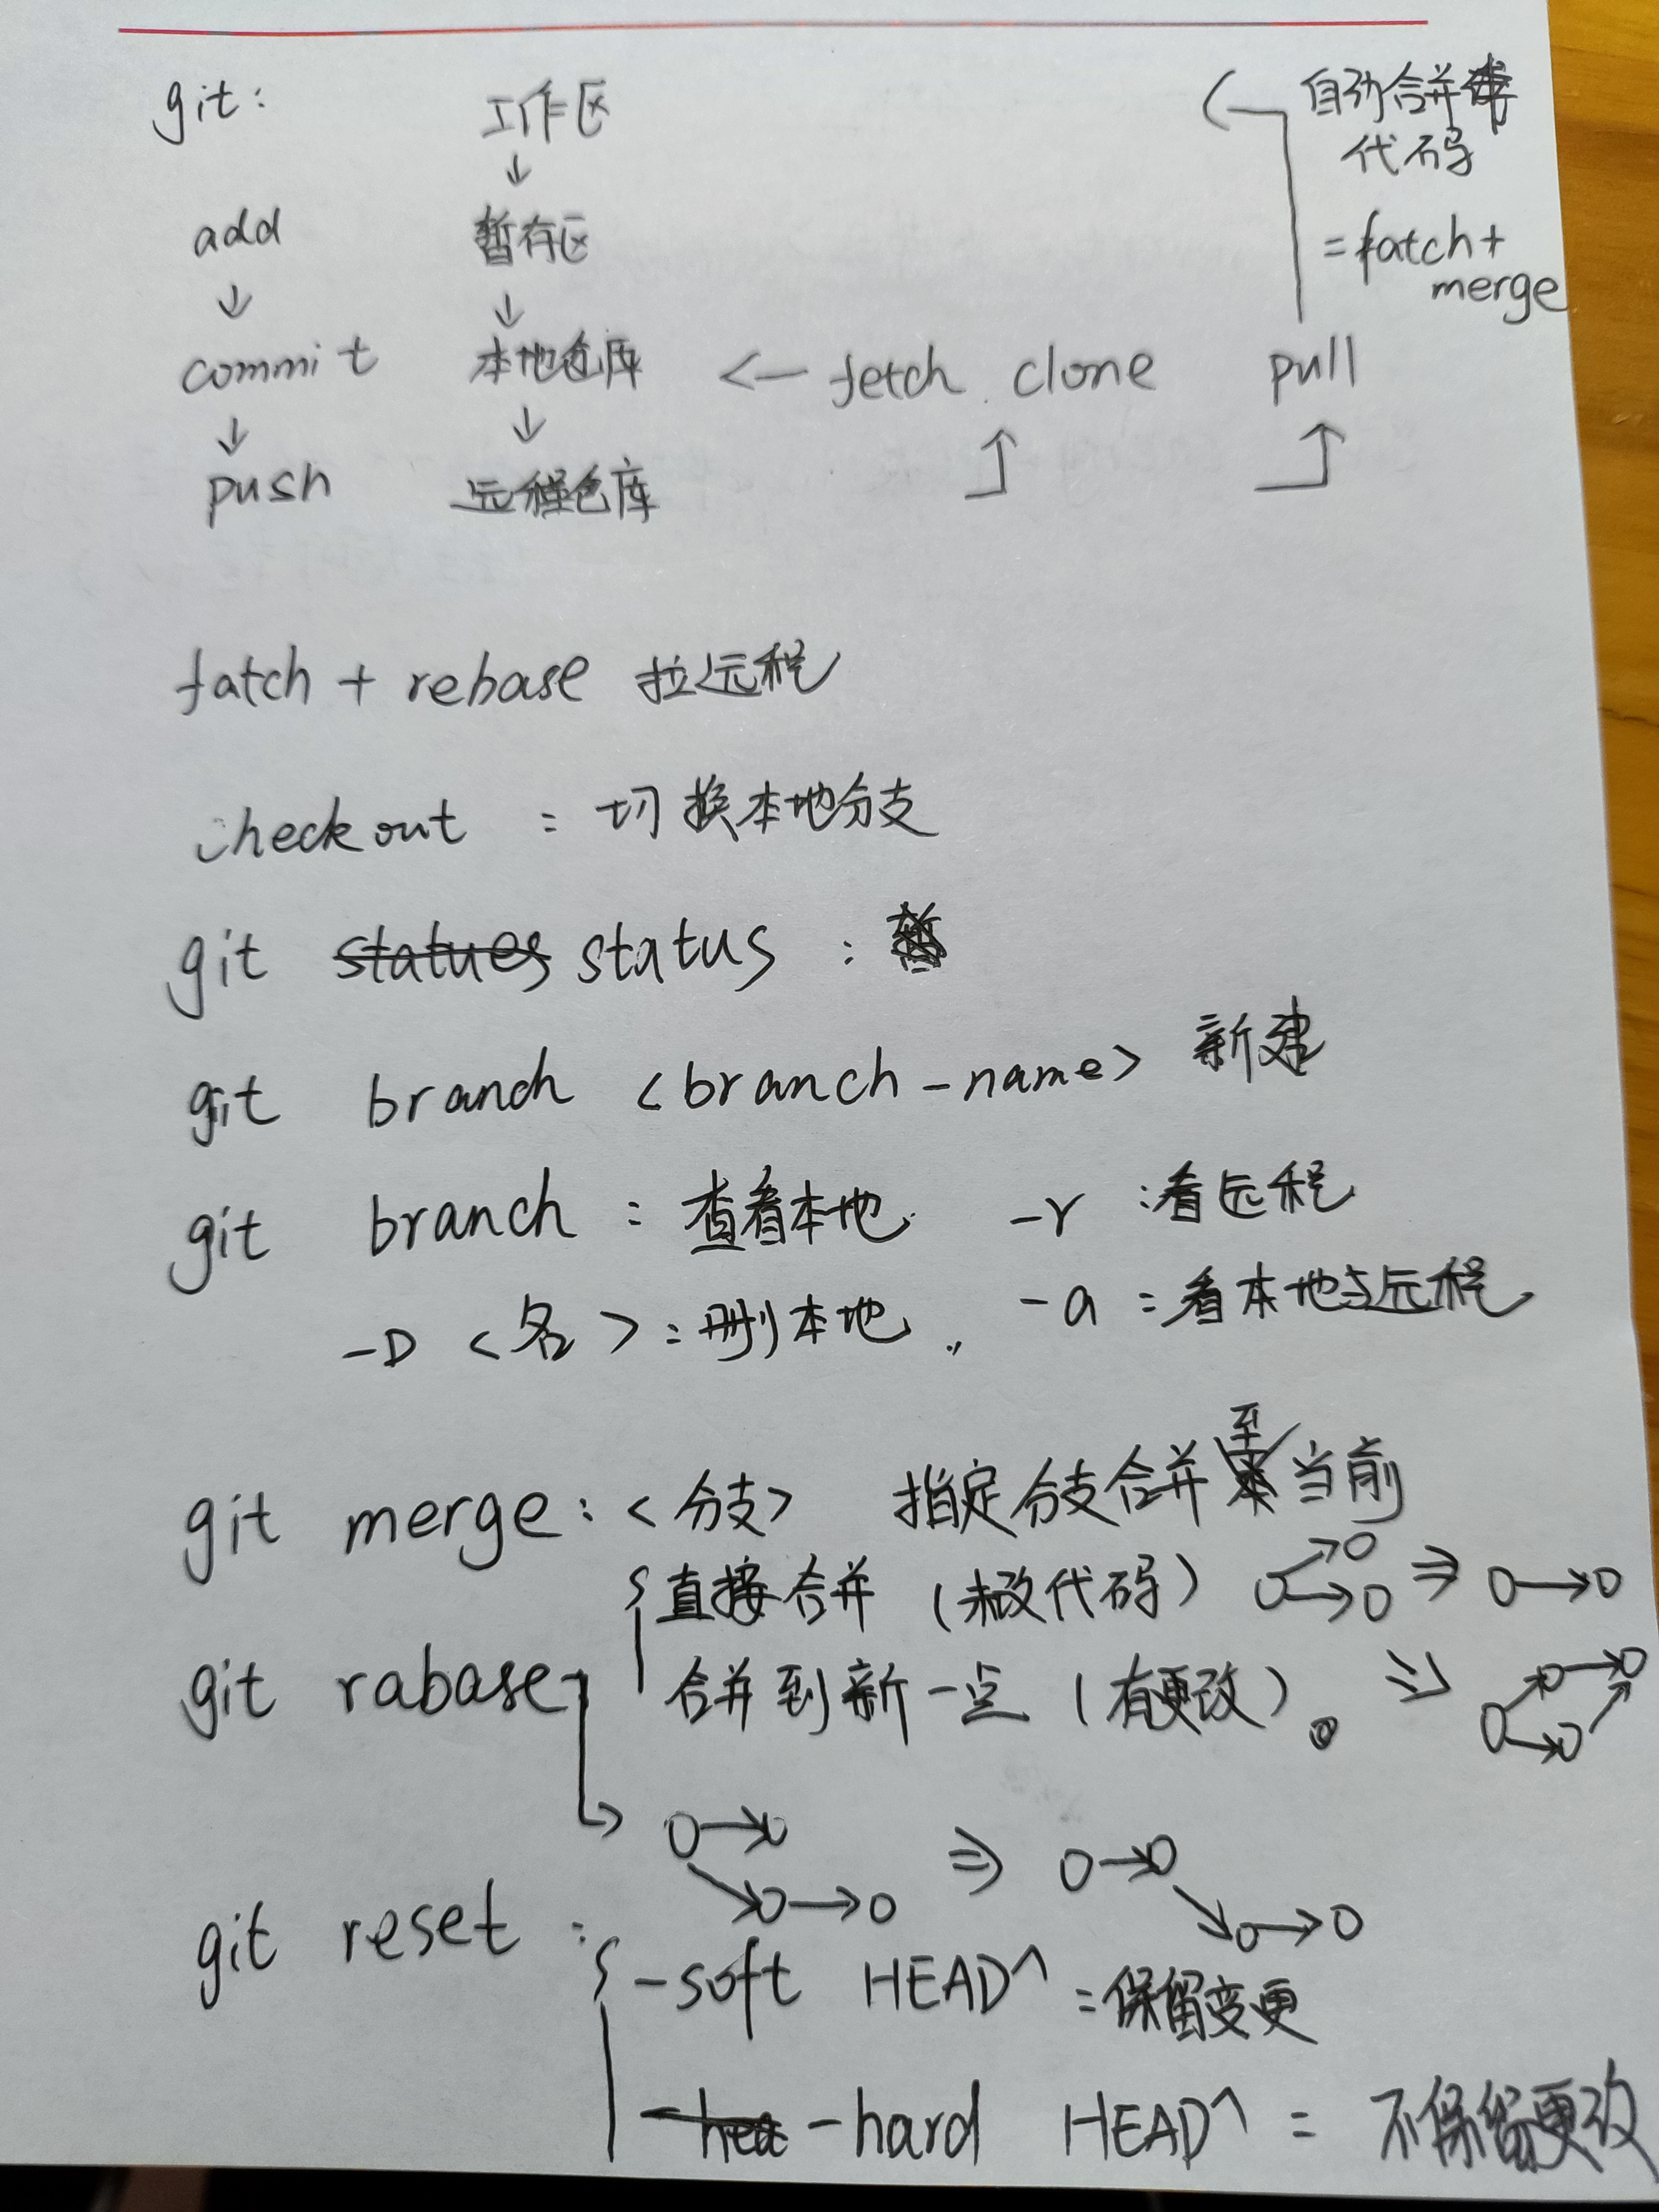 git: 工作区 自动合并
↓ 代码
add 暂存区 =fatch+
↓ ↓ merge
commit 本地仓库 <— fetch clone pull
↓ ↓
push 远程仓库
fatch + rebase 拉远程
checkout : 切换本地分支
git statues status :
git branch <branch-name> 新建
git branch : 查看本地 -r :看远程
-D <名> : 删本地 , -a : 看本地与远程
git merge: <分支> 指定分支合并至当前
直接合并 (未改代码) ⇒
git rabase 合并到新一点 (有更改)。 ⇒
⇒
git reset :
-soft HEAD^ =保留变更
-hea -hard HEAD^ = 不保留更改